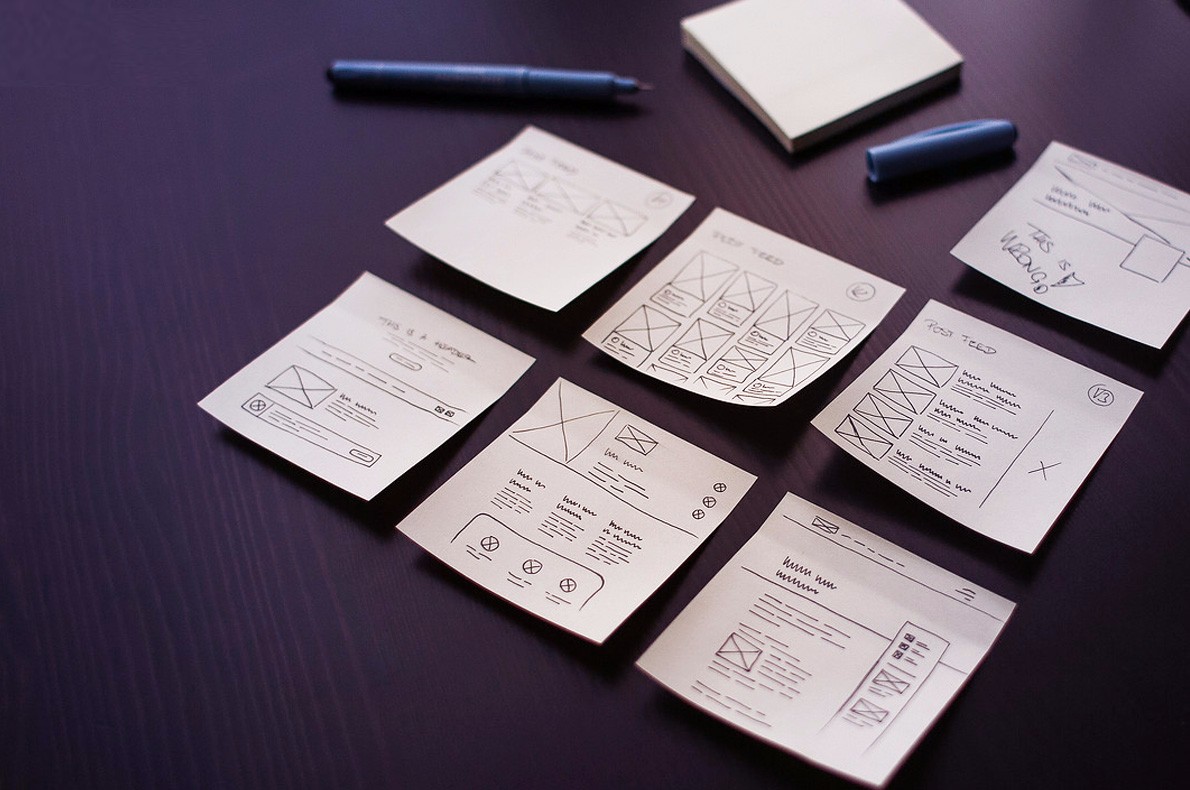 POST FEED
POST FEED
V2
THIS IS
WRONG
THIS IS A HEADER
POST FEED
V3